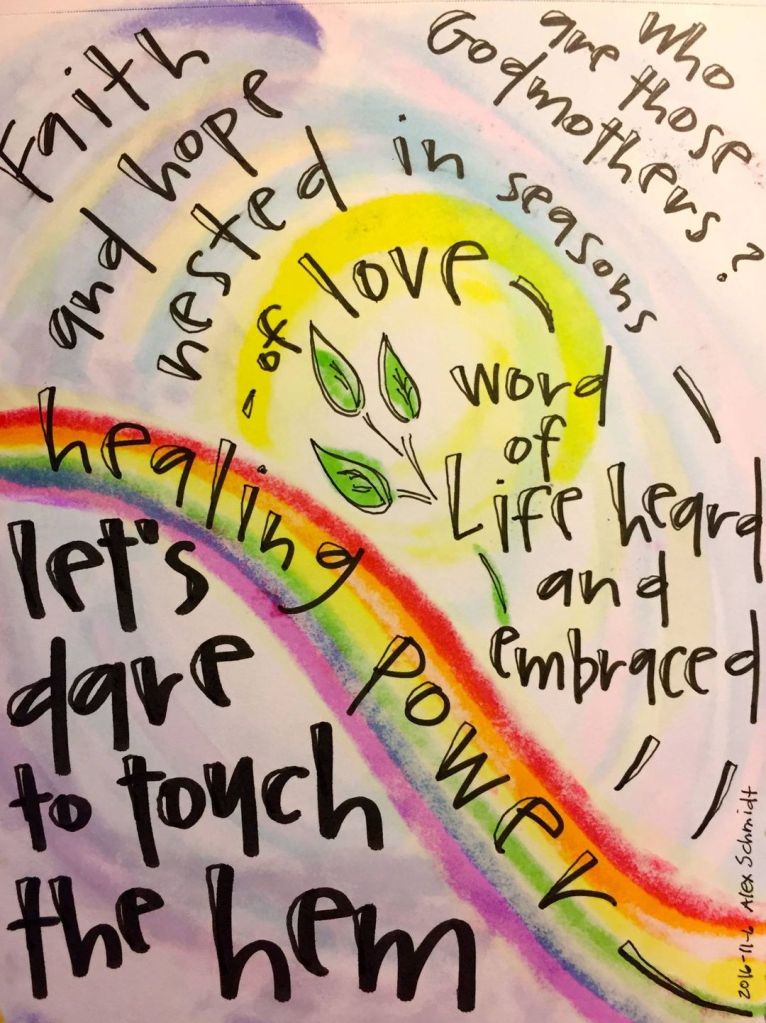 who
are those
Godmothers?
Faith
and hope
nested in seasons
of love
word
of
Life heard
and
embraced
healing power
let's
dare
to touch
the hem
2016-11-6 Alex Schmidt